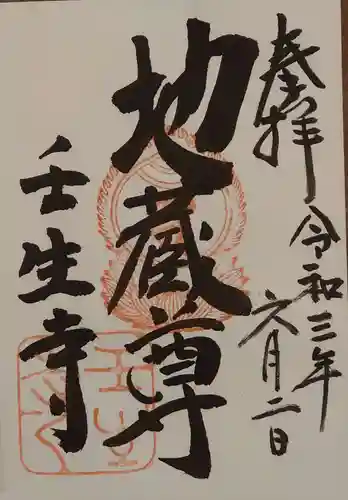 奉拝
令和三年
六月二日
地蔵尊
壬生寺